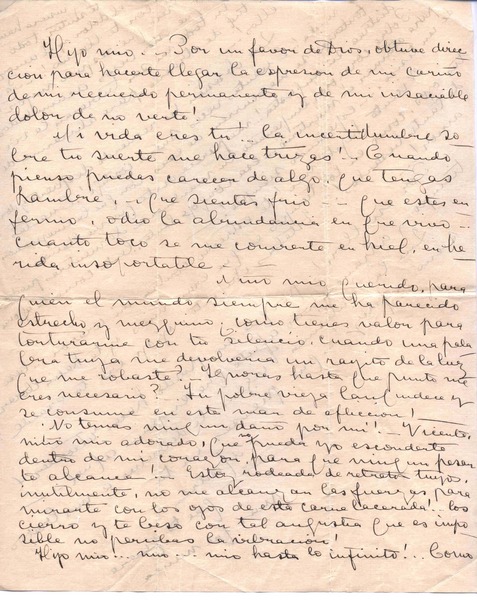 Hijo mio.- Por un favor de Dios, obtuve direc-
cion para hacerte llegar la expresion de mi cariño
de mi recuerdo permanente y de mi insaciable
dolor de no verte!-
Mi vida eres tu!... la incertidumbre so
bre tu suerte me hace trizas!- Cuando
pienso puedas carecer de algo, que tengas
hambre, - que sientas frio - que estes en
fermo, odio la abundancia en que vivo -
cuanto toco se me convierte en hiel, en he
rida insoportable -
Niño mio querido, para
quien el mundo siempre me ha parecido
estrecho y mezquino ¿como tienes valor para
torturarme con tu silencio, cuando una pala
bra tuya me devolveria un rayito de la luz
que me robaste? Ignoras hasta que punto me
eres necesario?.. Tu pobre vieja languidece y
se consume en este mar de afliccion!
No temas ningun daño por mi!- Vicente,
niño mio adorado, que no puedo yo esconderte
dentro de mi corazon para que ningun pesar
te alcance!- Estoy rodeada de retratos tuyos,
inutilmente, no me alcanzan las fuerzas para
mirarte con los ojos de esta carne lacerada!.. los
cierro y te beso con tal angustia que es impo
sible no percibas la vibracion!
Hijo mio... mio... mio hasta lo infinito!.. Como